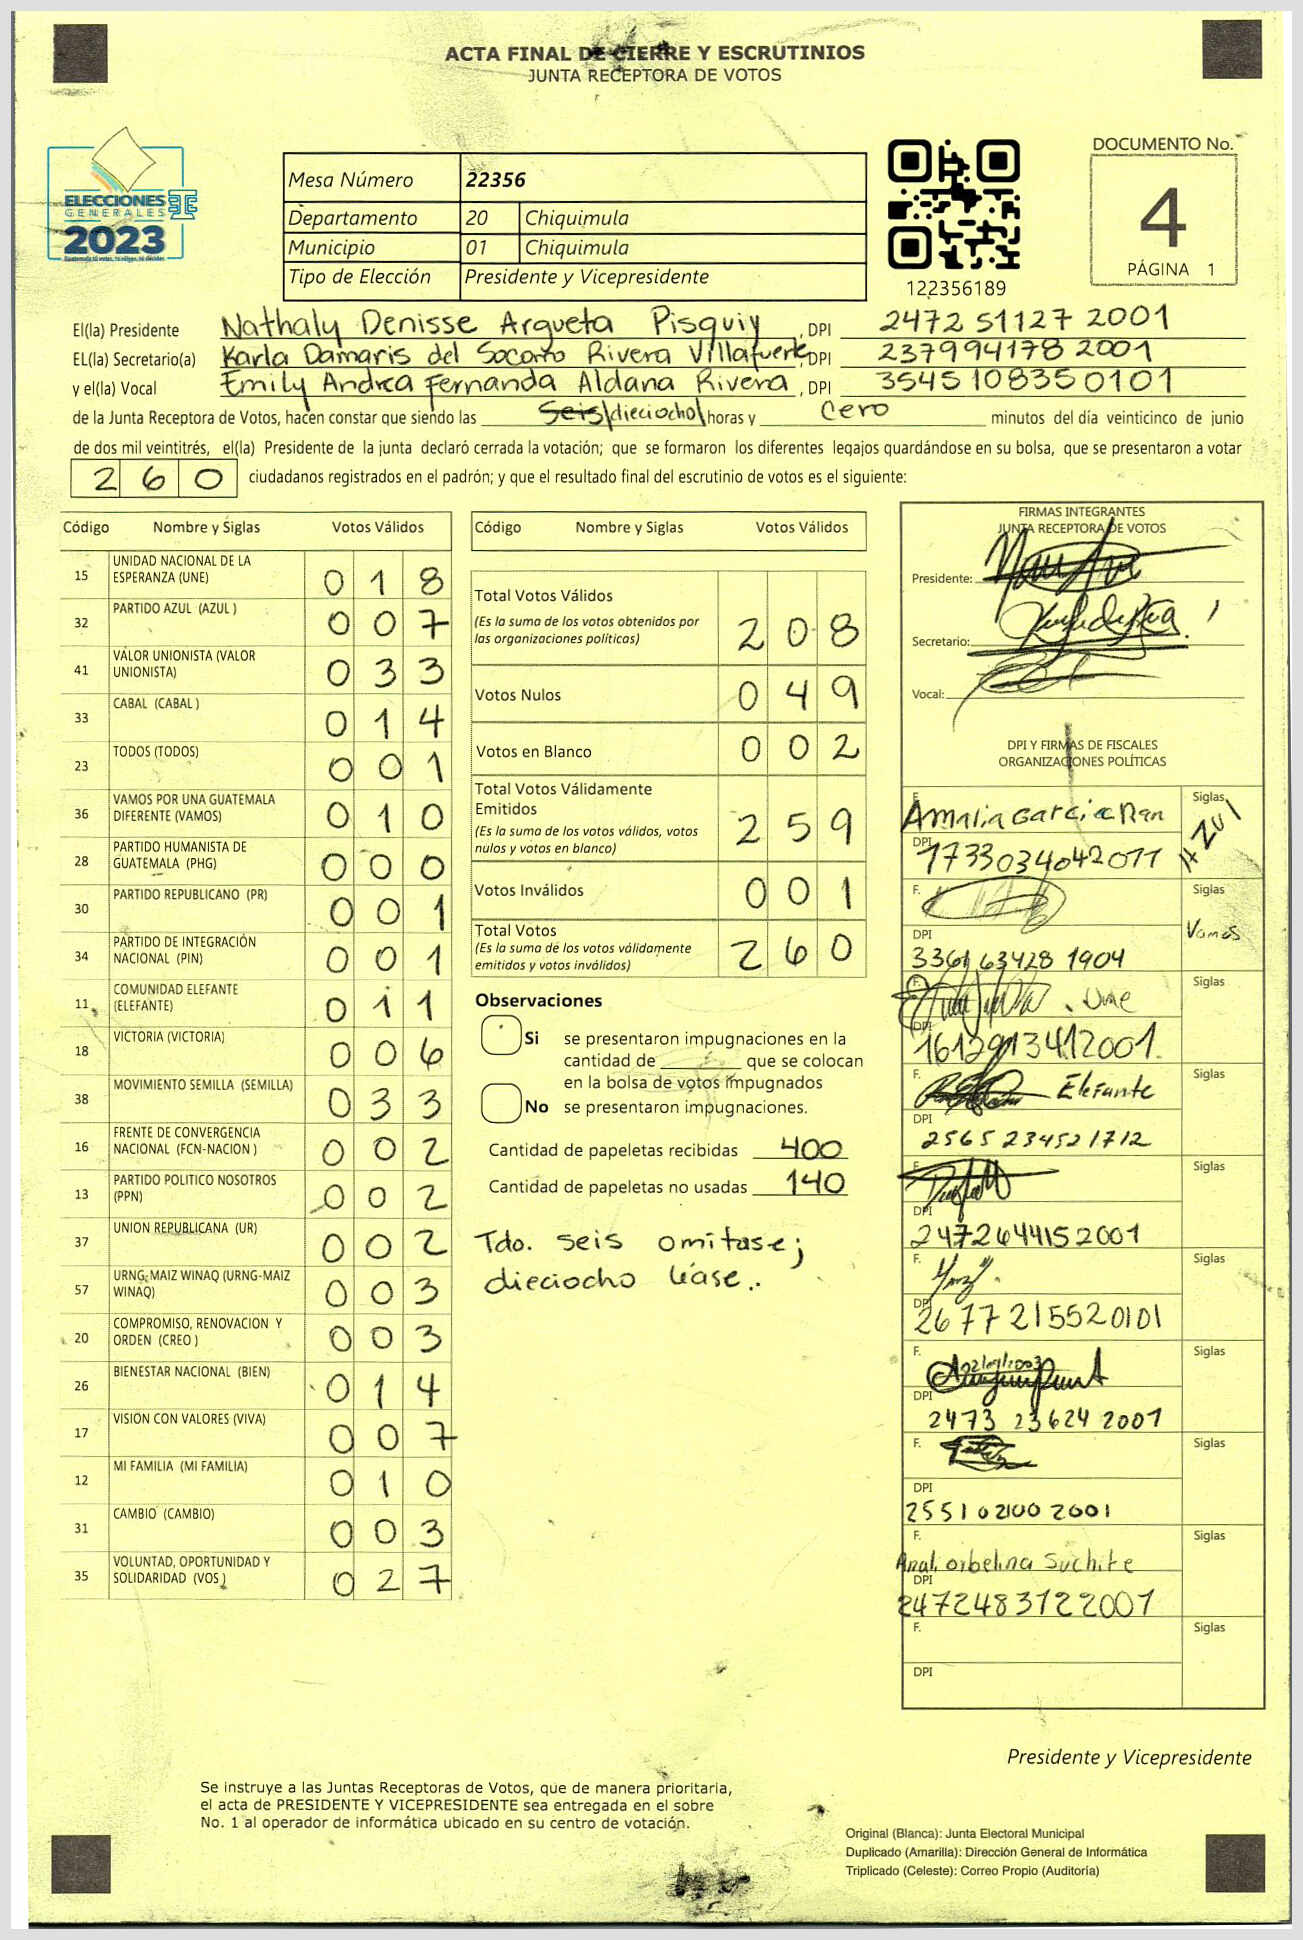 ACTA FINAL DE CIERRE Y ESCRUTINIOS
JUNTA RECEPTORA DE VOTOS
ELECCIONES
GENERALES
2023
Mesa Número 22356
Departamento 20 Chiquimula
Municipio 01 Chiquimula
Tipo de Elección Presidente y Vicepresidente
122356189
DOCUMENTO No.
4
PÁGINA 1
El(la) Presidente Nathaly Denisse Argueta Pisquiy , DPI 2472 51127 2001
EL(la) Secretario(a) Karla Damaris del Socorro Rivera Villafuerte, DPI 237994178 2001
y el(la) Vocal Emily Andrea Fernanda Aldana Rivera , DPI 3545108350101
de la Junta Receptora de Votos, hacen constar que siendo las Seis/dieciocho/ horas y cero minutos del día veinticinco de junio
de dos mil veintitrés, el(la) Presidente de la junta declaró cerrada la votación; que se formaron los diferentes legajos guardándose en su bolsa, que se presentaron a votar
260 ciudadanos registrados en el padrón; y que el resultado final del escrutinio de votos es el siguiente:
Código Nombre y Siglas Votos Válidos
15 UNIDAD NACIONAL DE LA ESPERANZA (UNE) 018
32 PARTIDO AZUL (AZUL ) 007
41 VALOR UNIONISTA (VALOR UNIONISTA) 033
33 CABAL (CABAL ) 014
23 TODOS (TODOS) 001
36 VAMOS POR UNA GUATEMALA DIFERENTE (VAMOS) 010
28 PARTIDO HUMANISTA DE GUATEMALA (PHG) 000
30 PARTIDO REPUBLICANO (PR) 001
34 PARTIDO DE INTEGRACIÓN NACIONAL (PIN) 001
11 COMUNIDAD ELEFANTE (ELEFANTE) 011
18 VICTORIA (VICTORIA) 006
38 MOVIMIENTO SEMILLA (SEMILLA) 033
16 FRENTE DE CONVERGENCIA NACIONAL (FCN-NACION ) 002
13 PARTIDO POLITICO NOSOTROS (PPN) 002
37 UNION REPUBLICANA (UR) 002
57 URNG-MAIZ WINAQ (URNG-MAIZ WINAQ) 003
20 COMPROMISO, RENOVACION Y ORDEN (CREO ) 003
26 BIENESTAR NACIONAL (BIEN) 014
17 VISION CON VALORES (VIVA) 007
12 MI FAMILIA (MI FAMILIA) 010
31 CAMBIO (CAMBIO) 003
35 VOLUNTAD, OPORTUNIDAD Y SOLIDARIDAD (VOS ) 027
Código Nombre y Siglas Votos Válidos
Total Votos Válidos
(Es la suma de los votos obtenidos por
las organizaciones políticas) 208
Votos Nulos 049
Votos en Blanco 002
Total Votos Válidamente
Emitidos
(Es la suma de los votos válidos, votos
nulos y votos en blanco) 259
Votos Inválidos 001
Total Votos
(Es la suma de los votos válidamente
emitidos y votos inválidos) 260
Observaciones
Si se presentaron impugnaciones en la
cantidad de ________ que se colocan
en la bolsa de votos impugnados
No se presentaron impugnaciones.
Cantidad de papeletas recibidas 400
Cantidad de papeletas no usadas 140
Tdo. seis omitase;
dieciocho léase..
FIRMAS INTEGRANTES
JUNTA RECEPTORA DE VOTOS
Presidente:
Secretario:
Vocal:
DPI Y FIRMAS DE FISCALES
ORGANIZACIONES POLÍTICAS
F. Amalia Garcia Siglas Azul
DPI 1733034042011
F. Siglas Vamos
DPI
3361 63428 1904
F. Une Siglas
DPI 1612913412001
F. Elefante Siglas
DPI
2565 23452 1712
F. Siglas
DPI
2472644152001
F. Siglas
DPI
2677 215520101
F. Siglas
DPI
2473 23624 2001
F. Siglas
DPI
2551 02100 2001
F. Siglas
Anal. orbelina Suchite
DPI
2472483122001
F. Siglas
DPI
Presidente y Vicepresidente
Se instruye a las Juntas Receptoras de Votos, que de manera prioritaria,
el acta de PRESIDENTE Y VICEPRESIDENTE sea entregada en el sobre
No. 1 al operador de informática ubicado en su centro de votación.
Original (Blanca): Junta Electoral Municipal
Duplicado (Amarilla): Dirección General de Informática
Triplicado (Celeste): Correo Propio (Auditoría)